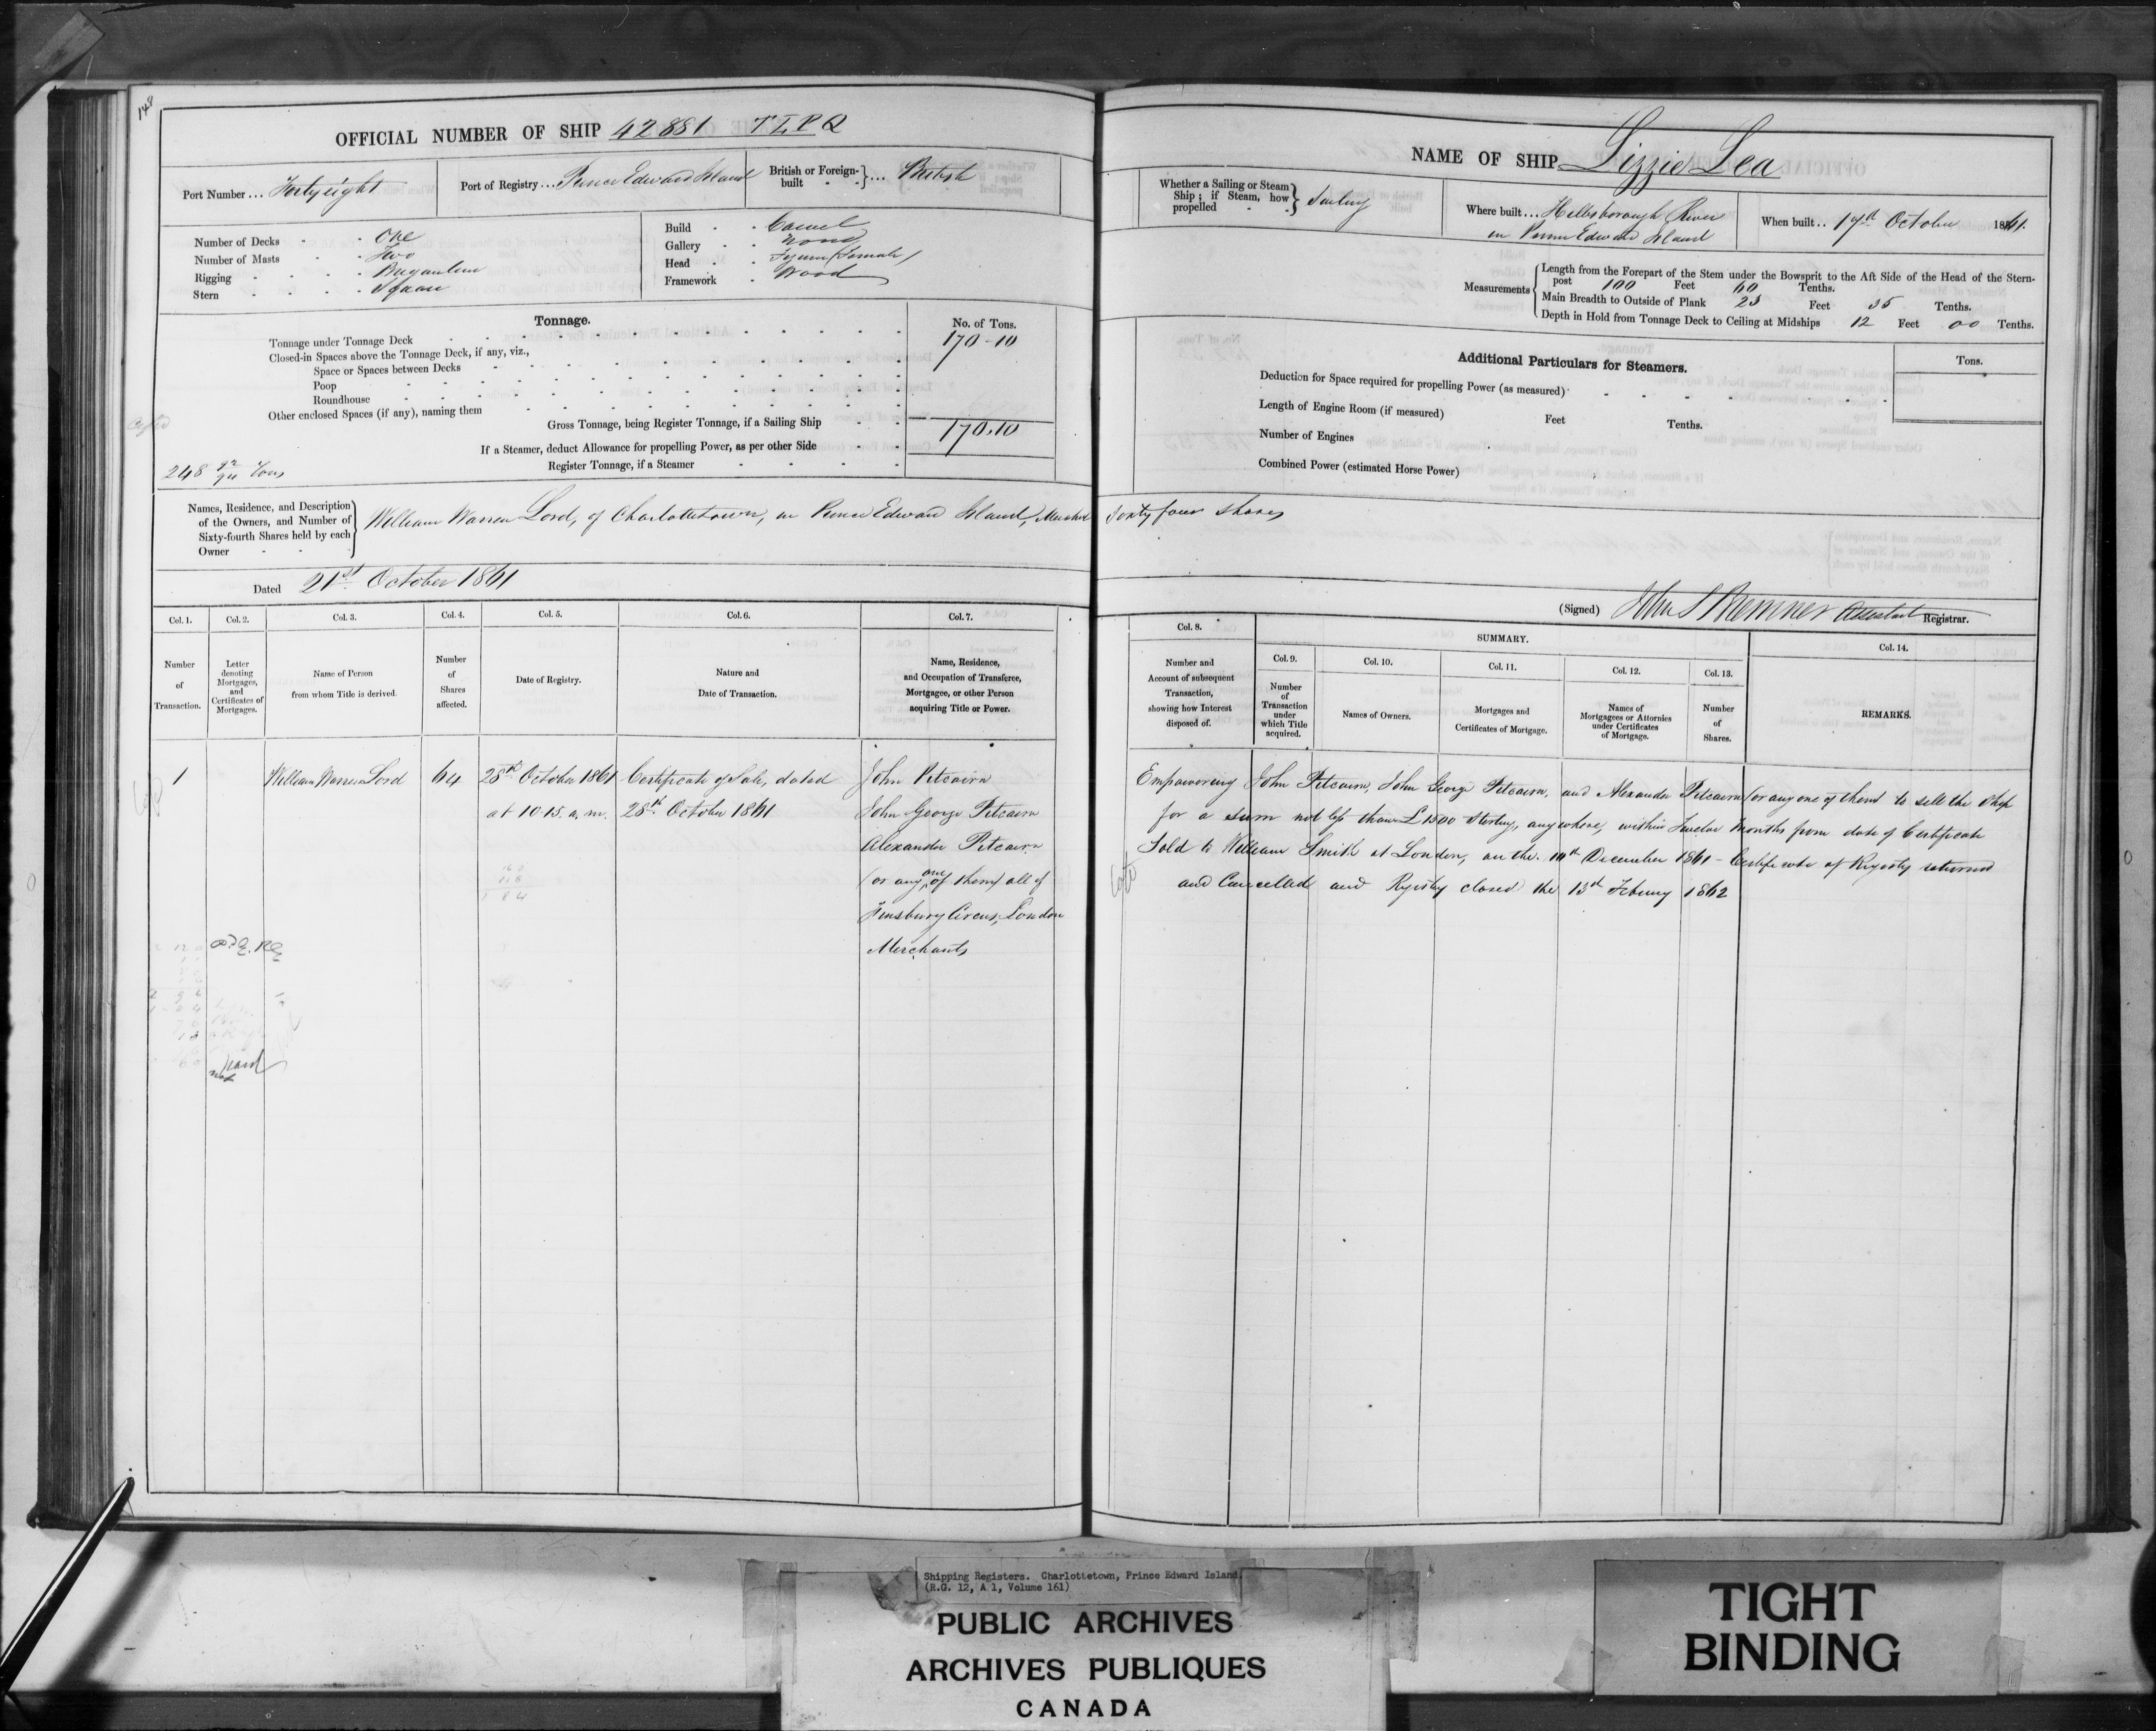 148
OFFICIAL NUMBER OF SHIP 42881 T L P Q
Port Number ... Forty eight
Port of Registry ... Prince Edward Island
British or Foreign-built } ... British
Number of Decks - - One
Number of Masts - - Two
Rigging - - - - Brigantine
Stern - - - - Square
Build - - Carvel
Gallery - - None
Head - - Figure (Female)
Framework - Wood
Tonnage.
No. of Tons.
Tonnage under Tonnage Deck 170-10
Closed-in Spaces above the Tonnage Deck, if any, viz.,
Space or Spaces between Decks
Poop
Roundhouse
Other enclosed Spaces (if any), naming them
Gross Tonnage, being Register Tonnage, if a Sailing Ship 170.10
If a Steamer, deduct Allowance for propelling Power, as per other Side
Register Tonnage, if a Steamer
248 Tons
Names, Residence, and Description of the Owners, and Number of Sixty-fourth Shares held by each Owner
William Warren Lord, of Charlottetown, in Prince Edward Island, Merchant
Dated 21st October 1861
Col. 1. Col. 2. Col. 3. Col. 4. Col. 5. Col. 6. Col. 7.
Number of Transaction.
Letter denoting Mortgages, and Certificates of Mortgages.
Name of Person from whom Title is derived.
Number of Shares affected.
Date of Registry.
Nature and Date of Transaction.
Name, Residence, and Occupation of Transferee, Mortgagee, or other Person acquiring Title or Power.
1 William Warren Lord 64 28th October 1861 Certificate of Sale, dated John Pitcairn
at 10.15. a. m. 28th October 1861 John George Pitcairn
Alexander Pitcairn
(or any one of them) all of
Finsbury Circus, London
Merchants
NAME OF SHIP Lizzie Lea
Whether a Sailing or Steam Ship; if Steam, how propelled } Sailing
Where built ... Hillsborough River
in Prince Edward Island
When built .. 17th October 1861.
Measurements
Length from the Forepart of the Stem under the Bowsprit to the Aft Side of the Head of the Stern-
post 100 Feet 60 Tenths.
Main Breadth to Outside of Plank 23 Feet 35 Tenths.
Depth in Hold from Tonnage Deck to Ceiling at Midships 12 Feet 00 Tenths.
Additional Particulars for Steamers.
Tons.
Deduction for Space required for propelling Power (as measured)
Length of Engine Room (if measured) Feet Tenths.
Number of Engines
Combined Power (estimated Horse Power)
Sixty four Shares
(Signed) John S Bremner Assistant Registrar.
Col. 8.
SUMMARY.
Col. 9. Col. 10. Col. 11. Col. 12. Col. 13. Col. 14.
Number and Account of subsequent Transaction, showing how Interest disposed of.
Number of Transaction under which Title acquired.
Names of Owners.
Mortgages and Certificates of Mortgage.
Names of Mortgagees or Attornies under Certificates of Mortgage.
Number of Shares.
REMARKS.
Empowering John Pitcairn, John George Pitcairn, and Alexander Pitcairn (or any one of them) to sell the Ship
for a sum not less than £1500 Sterling, any where, within Twelve Months from date of Certificate
Sold to William Smith at London, on the 10th December 1861 - Certificate of Registry returned
and Cancelled and Registry closed the 13th February 1862
Shipping Registers. Charlottetown, Prince Edward Island.
(R.G. 12, A 1, Volume 161)
PUBLIC ARCHIVES
ARCHIVES PUBLIQUES
CANADA
TIGHT
BINDING